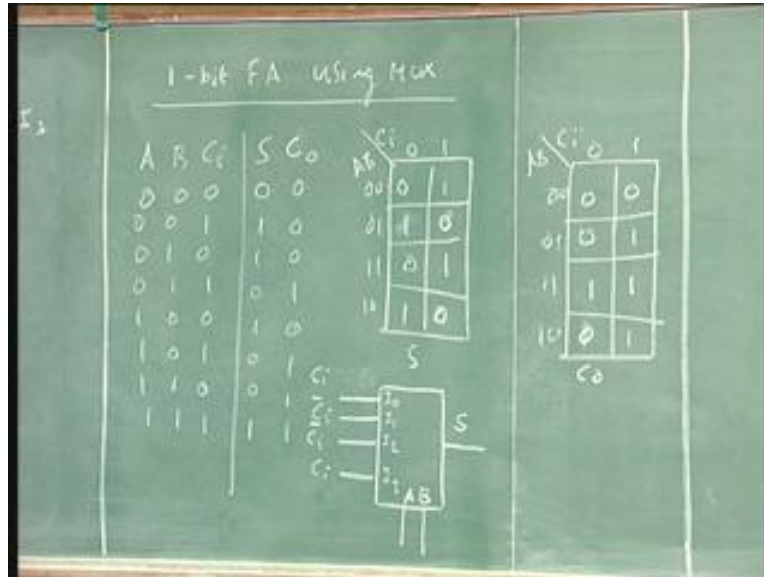 1-bit FA using MUX
I3
A B Ci S Co
0 0 0 0 0
0 0 1 1 0
0 1 0 1 0
0 1 1 0 1
1 0 0 1 0
1 0 1 0 1
1 1 0 0 1
1 1 1 1 1
Ci
AB 0 1
00 0 1
01 1 0
11 0 1
10 1 0
S
Ci
AB 0 1
00 0 0
01 0 1
11 1 1
10 0 1
Co
Ci I0
C̅i I1
C̅i I2
Ci I3
S
A B